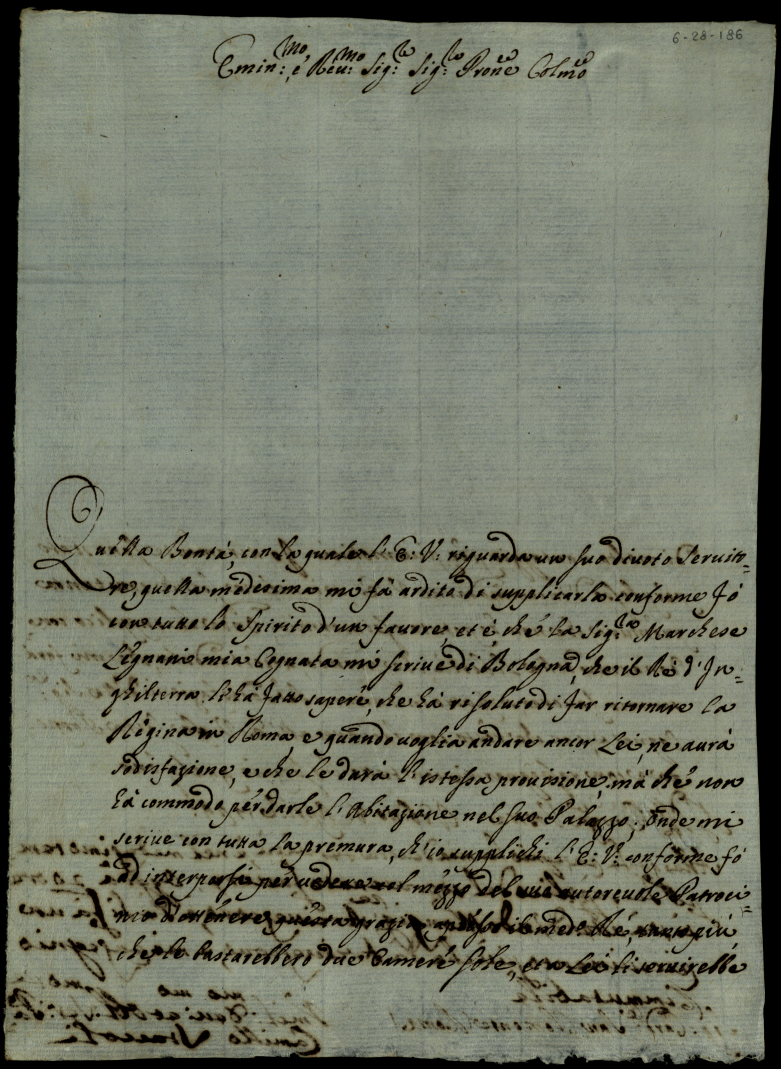 6-28-186
Emin:mo, é Reu:mo Sig:re Sig:re Prone Colmo
Quella Bontà, con la quale l'E: V: riguarda un suo diuoto Seruito=
re, quella medecima mi fà ardito di supplicarla conforme Fò
con tutto lo Spirito d'un fauore, et é, ché La Sig:ra Marchese
Legnani mia Cognata mi scriue di Bologna, che il Ré d'In=
ghilterra li hà fatto sapere, che hà risoluto di far ritornare La
Regina in Roma, e quando uoglia andare ancor Lei, ne aurà
sodisfazione, e che le darà l'istessa prouisione, mà ché non
hà commodo per darle l'Abitazione nel suo Palazzo; onde mi
scriue con tutta La premura, ch'io supplichi l'E: V: conforme fò
ad interporsi per uedere col mezzo del suo autoreuole Patroci=
nio d'ottenere questa grazia appresso il med:o Ré, tanto più
che le bastarebbero due Camere sole, et a Lei li seruirebbe